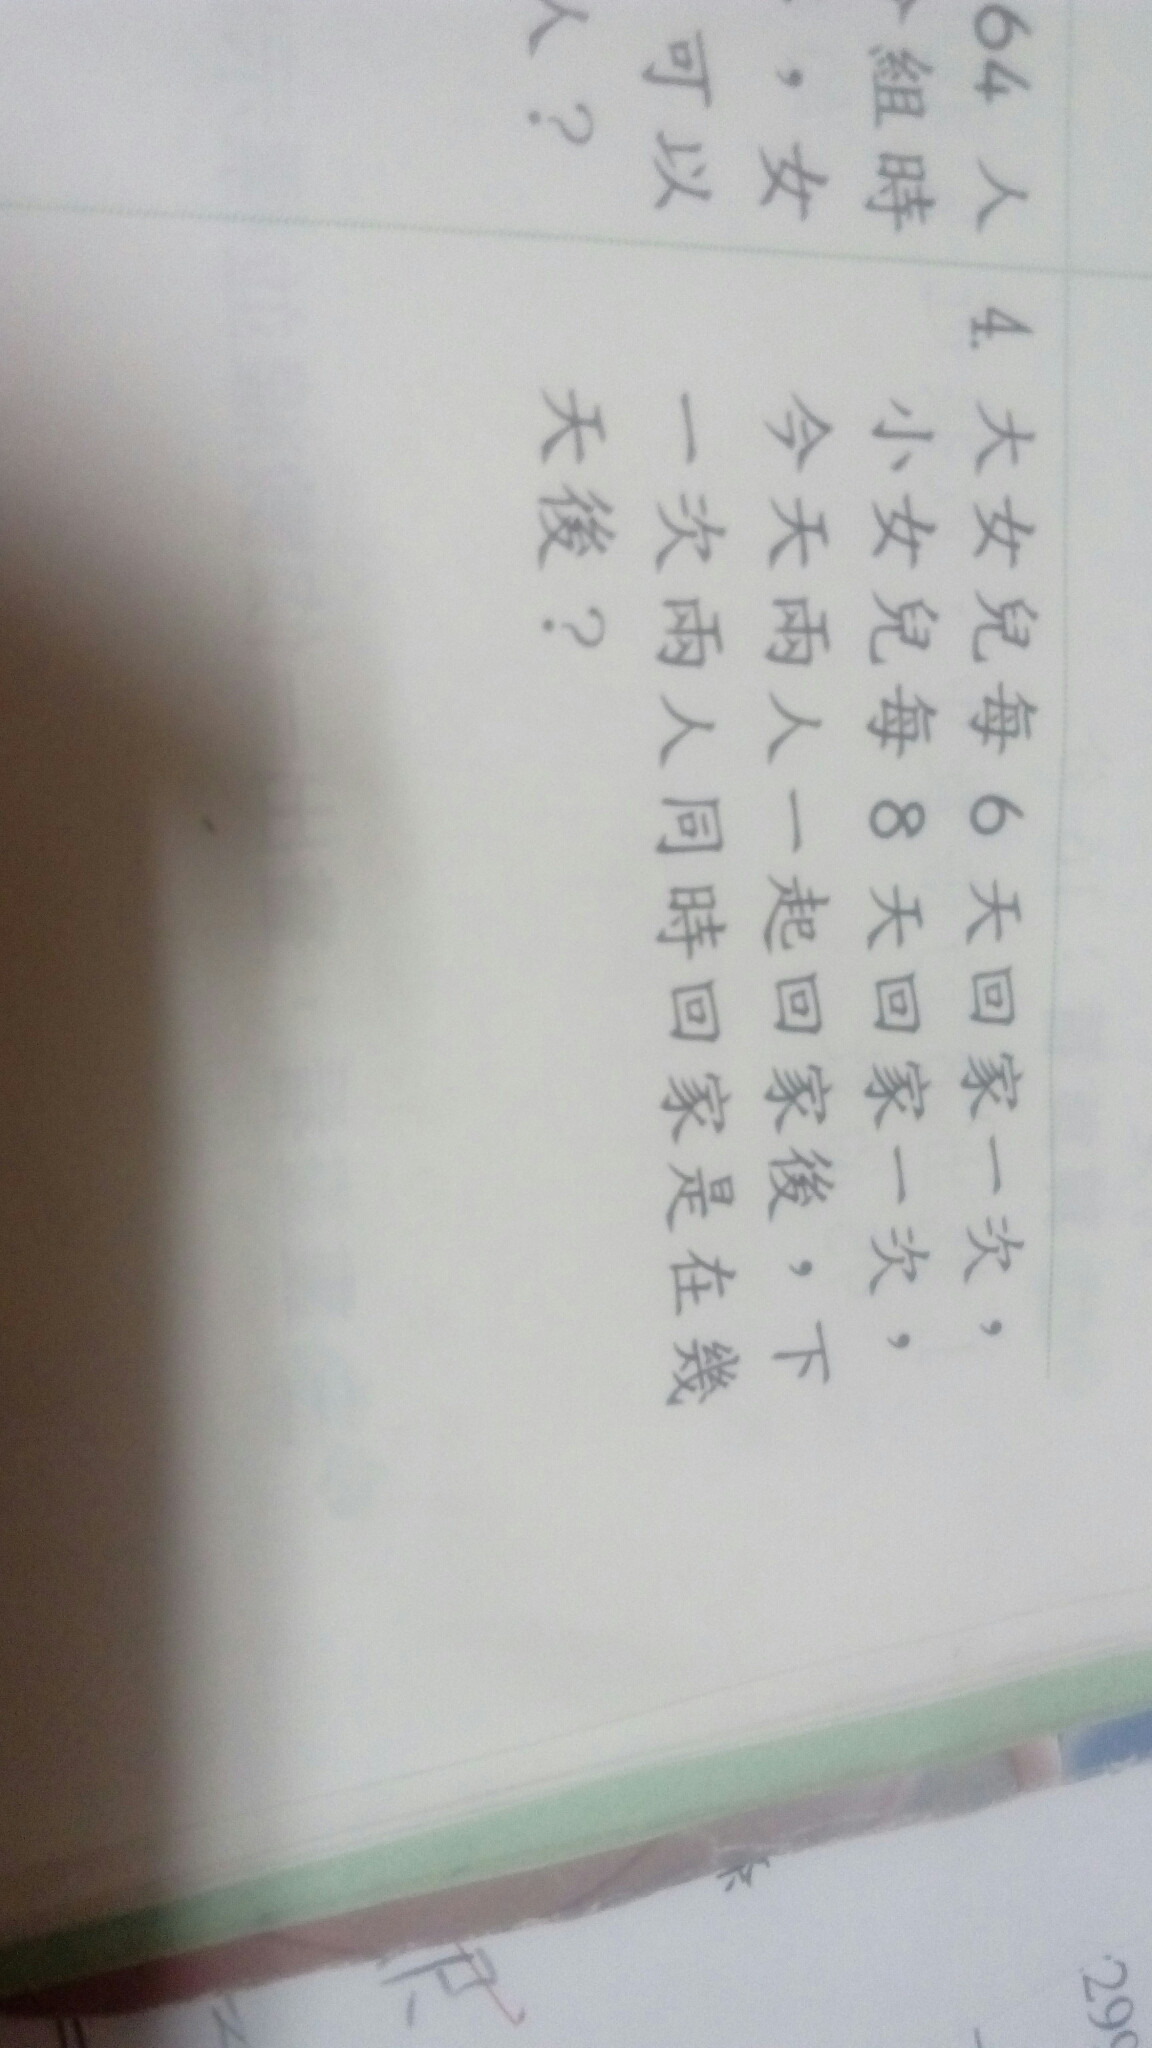 64 人
組時
，女
可以
人？
4. 大女兒每 6 天回家一次，
小女兒每 8 天回家一次，
今天兩人一起回家後，下
一次兩人同時回家是在幾
天後？
299